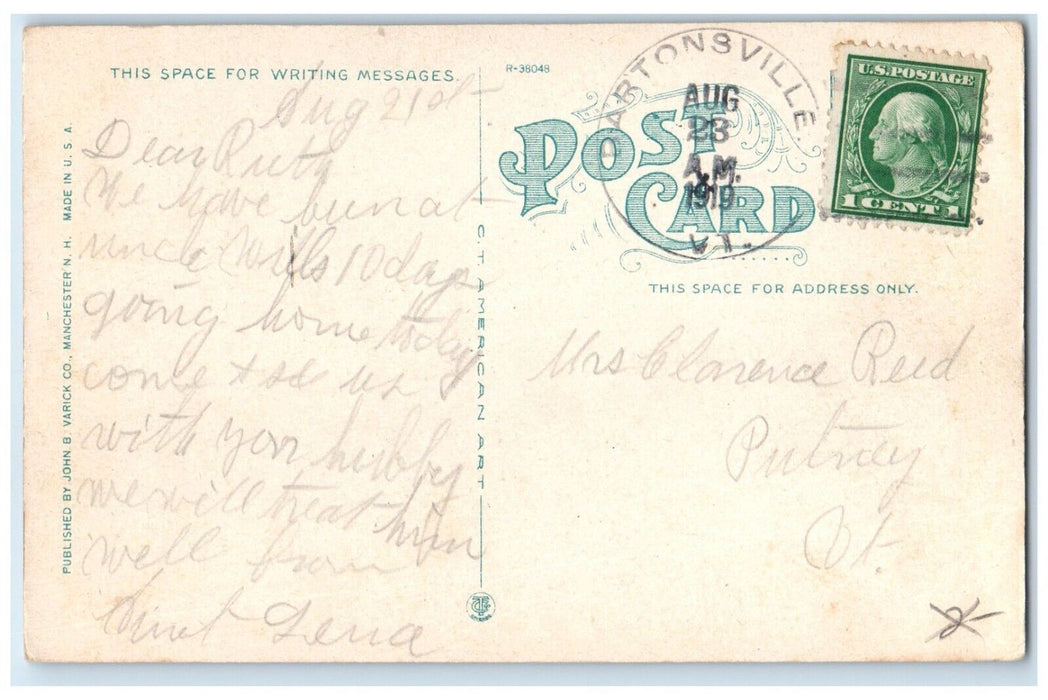 THIS SPACE FOR WRITING MESSAGES.
Aug 21st
Dear Ruth
We have been at
uncle Wills 10 days
going home today
come & see us
with your hubby
we will treat him
well from
Aunt Lena
PUBLISHED BY JOHN B. VARICK CO., MANCHESTER N. H. MADE IN U. S. A.
C.T. AMERICAN ART
R-38048
POST CARD
BARTONSVILLE
AUG
23
A.M.
1919
VT.
U.S. POSTAGE
1 CENT 1
THIS SPACE FOR ADDRESS ONLY.
Mrs Clarence Reed
Putney
Vt.